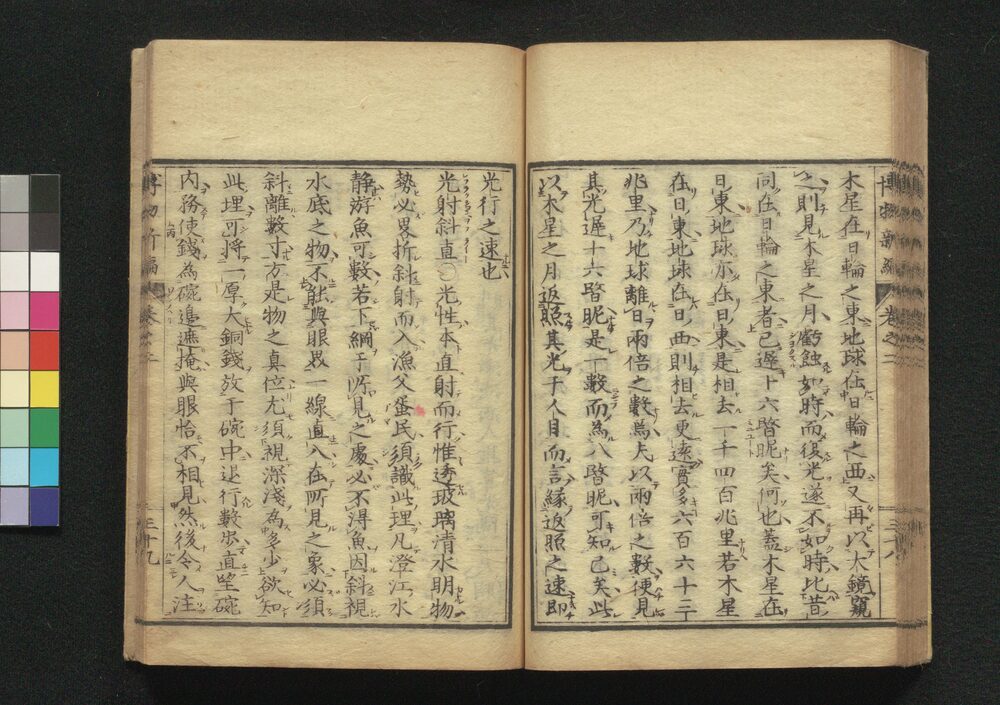 博物新編 卷之二 三十八
木星在日輪之東地球在日輪之西又再以大鏡窺
之則見木星之月虧蝕如時而復光遂不如時比昔
同在日輪之東者已遲十六瞥眤矣何也蓋木星在
日東地球亦在日東是相去一千四百兆里若木星
在日東地球在日西則相去更遠實多六百六十二
兆里乃地球離日兩倍之數爲大以兩倍之數便見
其光遲十六瞥眤是一數而爲八瞥眤可知已矣此
以木星之月返照其光于人目而言緣返照之速即
光行之速也
光射斜直〇光性本直射而行惟透玻璃清水明物
勢必畧折斜射而入漁父蛋民須識此理凡澄江水
静游魚可數若下網于所見之處必不淂魚因斜視
水底之物不能與眼界一線直八在所見之象必須
斜離數寸方是物之真位尢須視深淺為多少欲知
此埋可將一厚大銅錢放于碗中退行數步直望碗
内務使錢為碗邉遮掩與眼恰不相見然後令人注
博物新編 卷之二 三十九